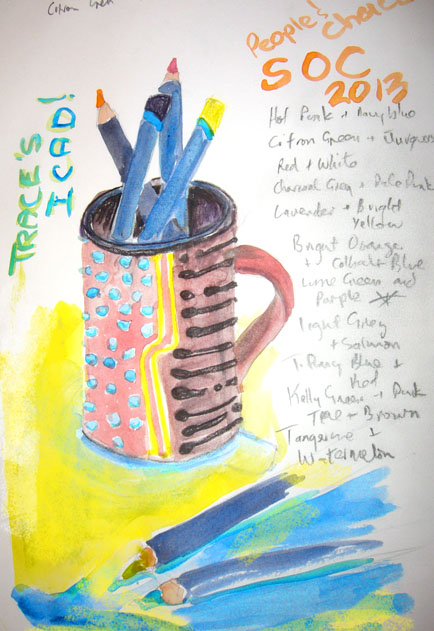 Citron Green
People's Choice
SOC
2013
TRACE'S
ICAD!
Hot Pink + Navy blue
Citron Green + Turquoise
Red + White
Charcoal Grey + Pale Pink
Lavender + Bright
Yellow
Bright Orange
+ Cobalt Blue
Lime Green and
Purple
Light Grey
+ Salmon
Blue +
Red
Kelly Green + Pink
+ Brown
Tangerine +
Watermelon